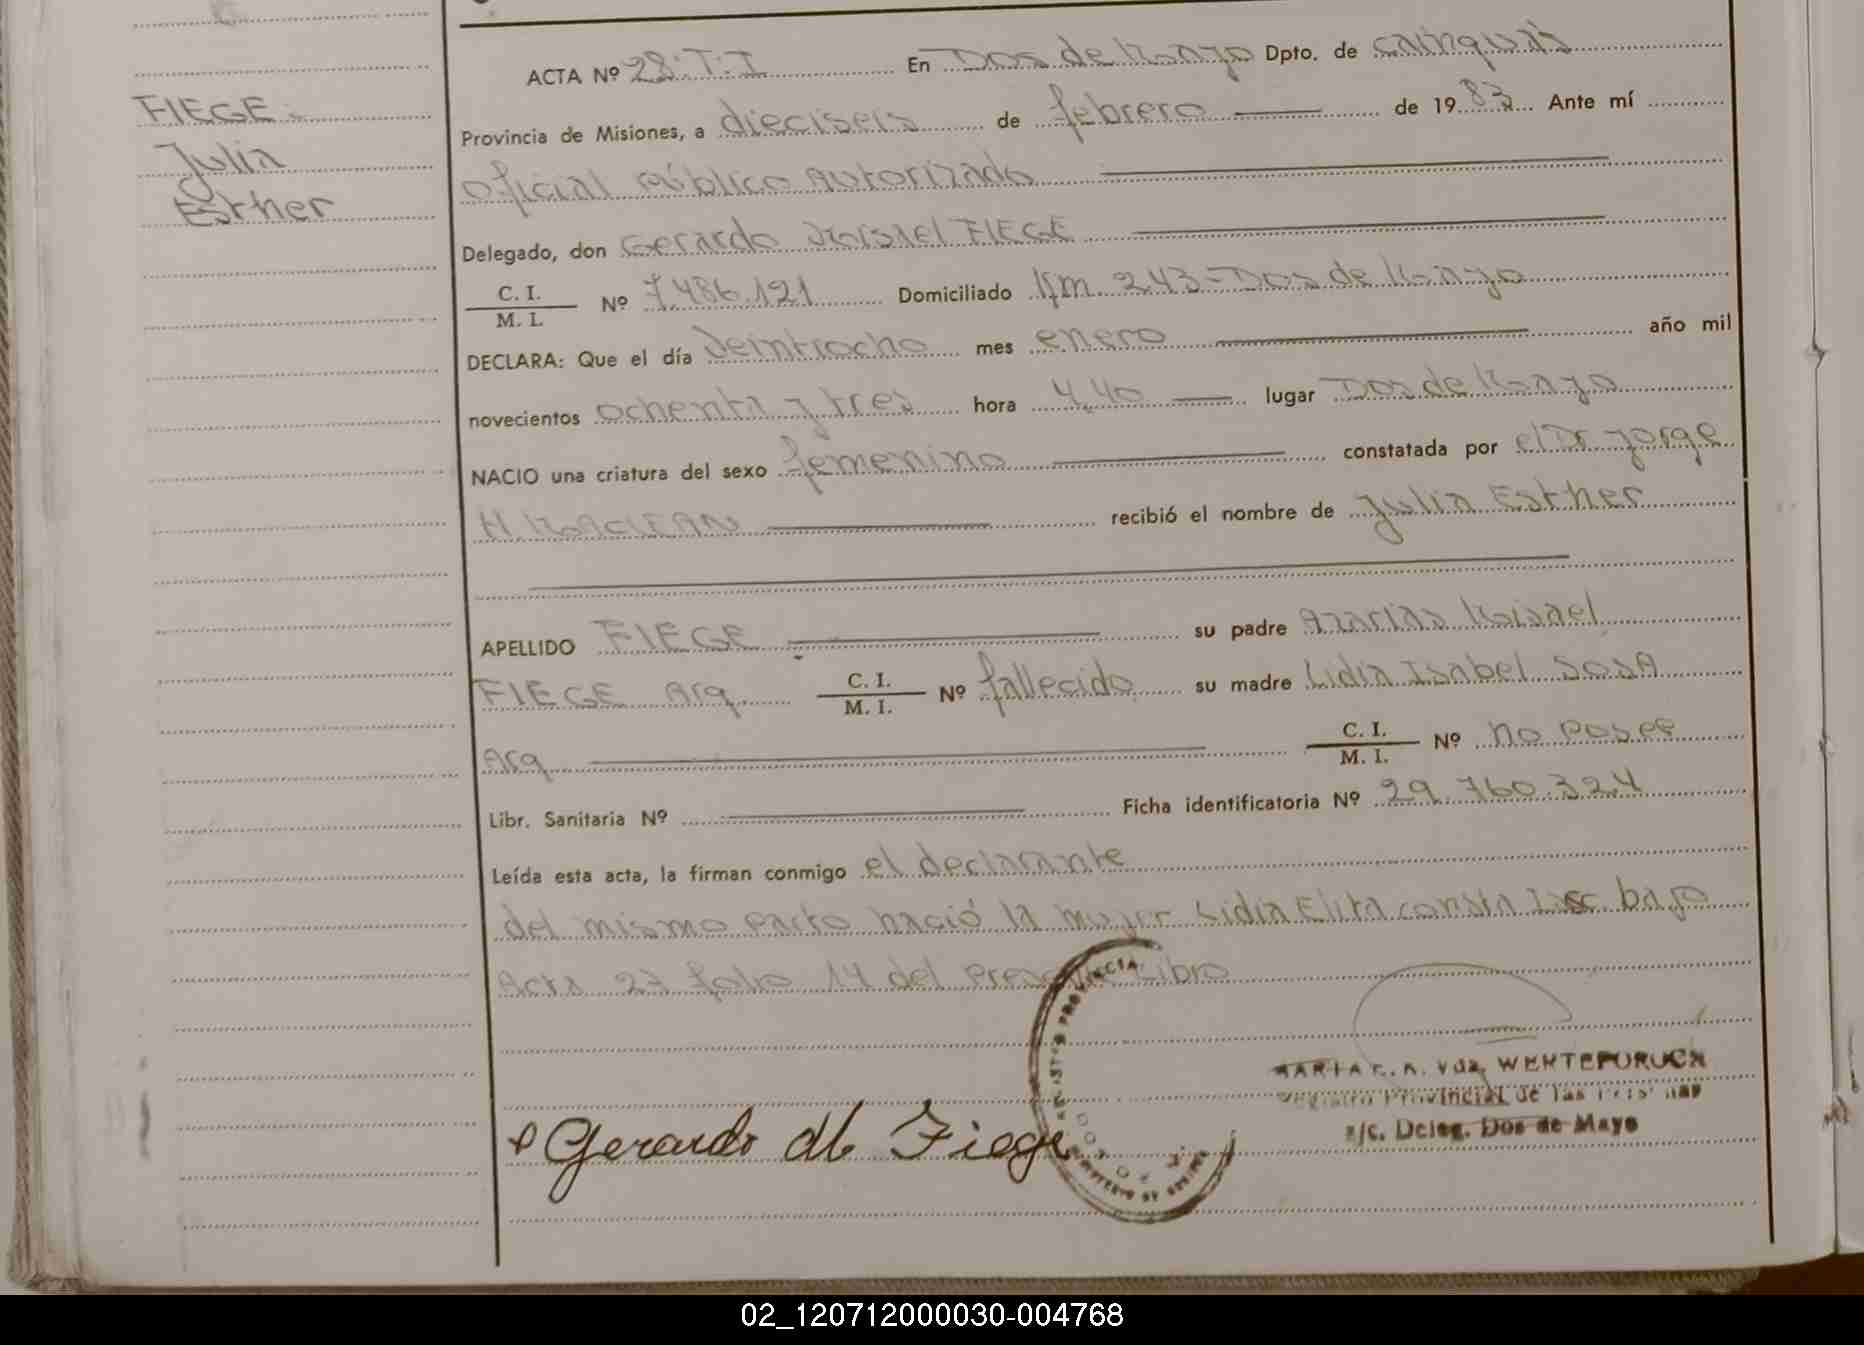 FIEGE
Julia
Esther
ACTA Nº 28. T. I En Dos de Mayo Dpto. de cainguás
Provincia de Misiones, a dieciseis de febrero de 1983 Ante mí
oficial público autorizado
Delegado, don Gerardo Misael FIEGE
C. I. / M. I. Nº 7.486.121 Domiciliado Km. 243-Dos de Mayo
DECLARA: Que el día veintiocho mes enero año mil
novecientos ochenta y tres hora 4,40 lugar Dos de Mayo
NACIO una criatura del sexo femenino constatada por el Dr Jorge
H MACLEAN recibió el nombre de Julia Esther
APELLIDO FIEGE su padre Azarias Misael
FIEGE Arg. C. I. / M. I. Nº fallecido su madre Lidia Isabel SOSA
Arg C. I. / M. I. Nº no posee
Libr. Sanitaria Nº Ficha identificatoria Nº 29.760.324
Leída esta acta, la firman conmigo el declarante
del mismo parto nació la mujer Lidia Elita consta Insc. bajo
Acta 27 folio 14 del presente Libro
Gerardo M Fiege
PROVINCIA
MARIA Vda. WERTEFURUCH
Registro Provincial de las Personas
a/c. Deleg. Dos de Mayo
02_120712000030-004768